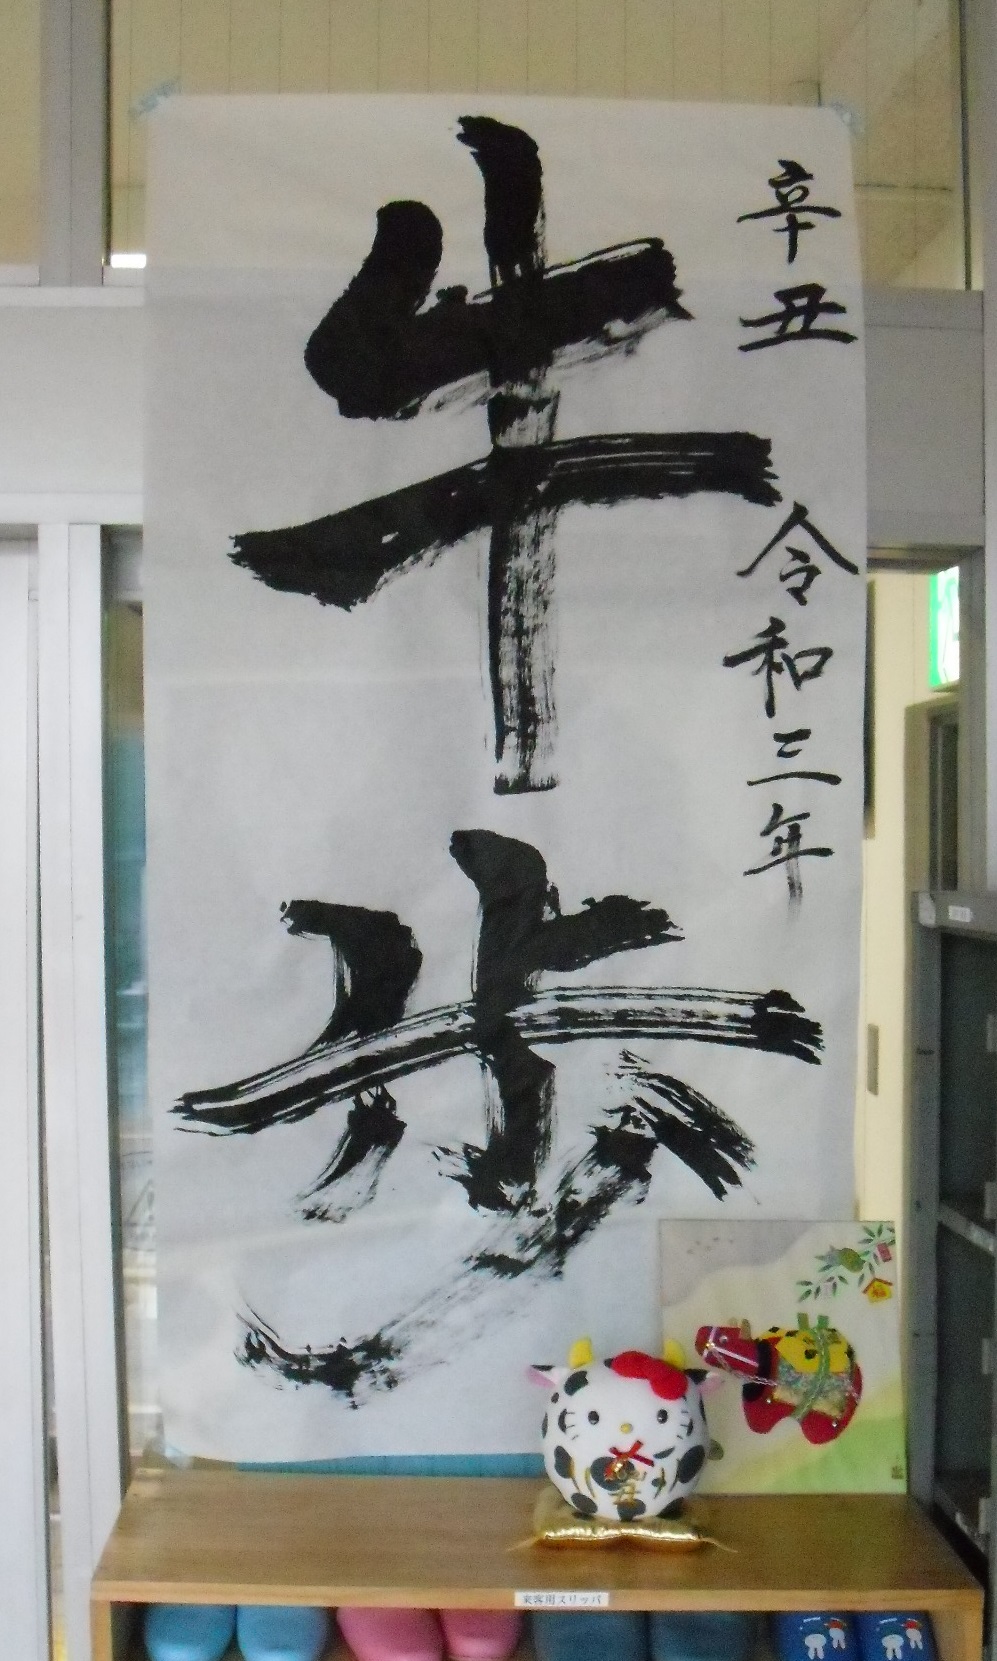 辛丑 令和三年
牛歩
丑
来客用スリッパ